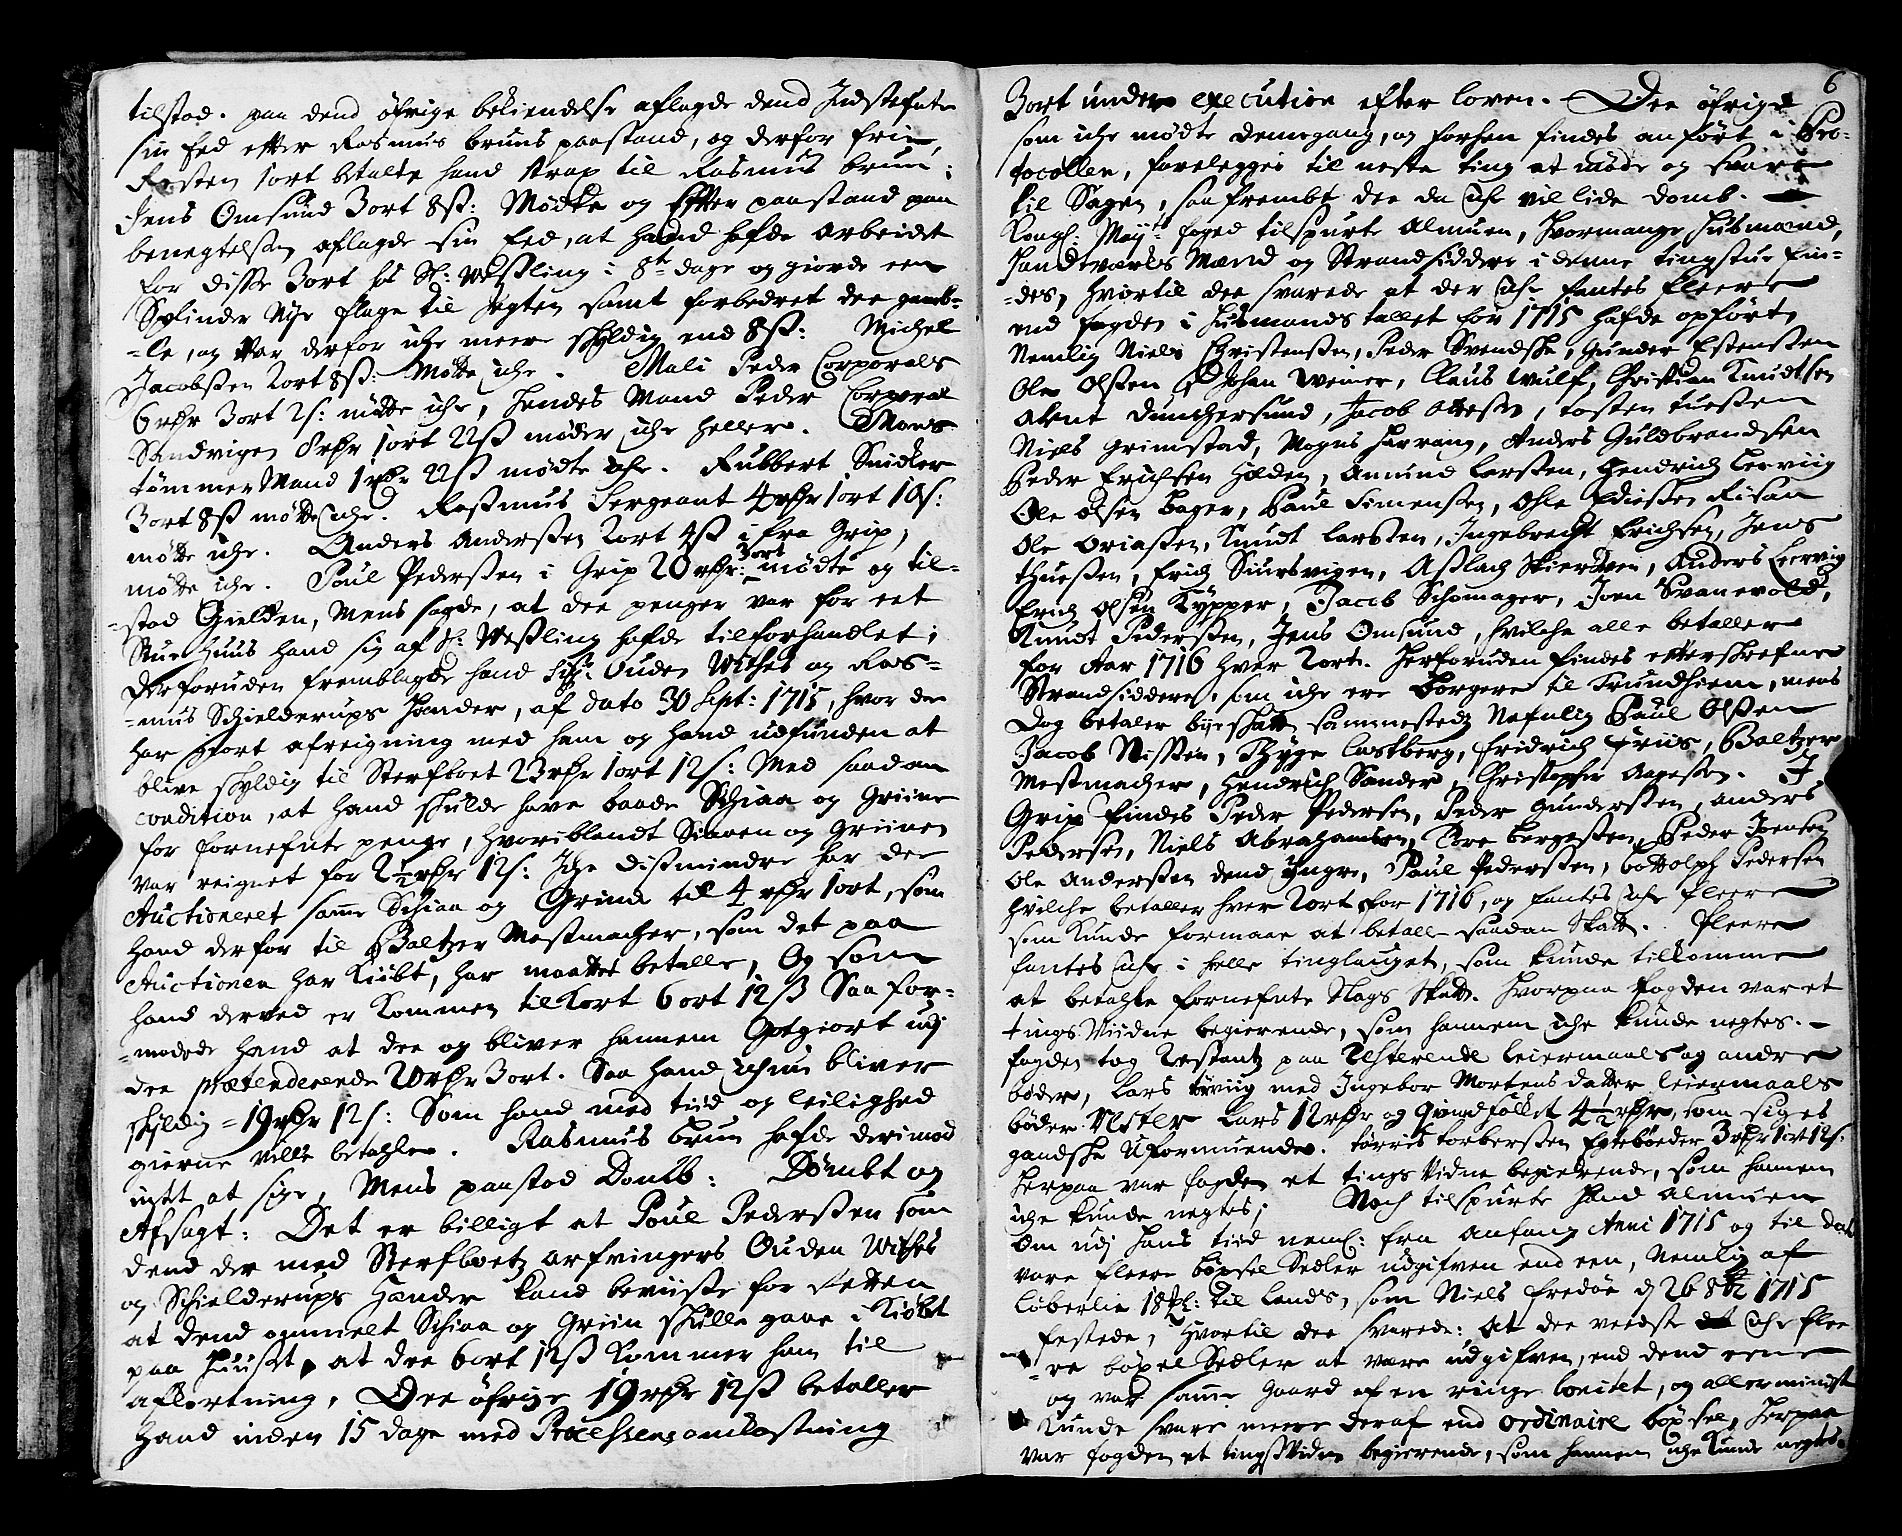 tilstod. paa dend öfrige bekiendelse aflagde dend Indstefnte
sin Eed efter Rasmus bruns paastand, og derfor frie,
Resten 1ort betalte hand strax til Rasmus brun;
Jens Omsund 3ort 8ß: Mødte og Efter paastand paa
benegtelsen aflagde sin Eed, at hand hafde arbeidet
for disse 3ort hos Sl: Weßling i 8te dage og giorde een
Splinder Nye flage til Jegten samt forbedret dee gamb-
-le, og var derfor iche meere skyldig end 8ß: Michel
Jacobßen 2ort 8ß: mötte iche. Mali Peder Corporals
6rdr 3ort 2s: mötte iche, hendes Mand Peder Corporal
Sandvigen 8rdr 1ort 22ß möder iche heller. Mons
tömmer Mand 1rdr 22ß mödte iche. Rubbert Snidker
3ort 8ß mötte iche. Rasmus Sergeant 4rdr 1ort 10s:
mötte iche. Anders Anderßen 2ort 4ß i fra Grip,
mötte iche. Poul Pederßen i Grip 20rdr: 3ort mödte og til-
-stod Gielden, Mens sagde, at dee penger var for eet
Stue Huus hand sig af Sl: Weßling hafde tilforhandlet;
derforuden fremblagde hand Sr: Ouden Withes og Ras-
-mus Schielderups Hænder, af dato 30 Sept: 1715, hvor de
har giort afreigning med ham og hand udfunden at
blive skyldig til Sterfboet 23rdr 1ort 12s: Med saadan
condition, at hand skulde have baade Schiaa og Griine
for fornefnte penge, hvoriblandt Siaaen og Griinen
var reignet for 2½rdr 12s: Iche dismindre har dee
Auctioneret samme Schiaa og Grind til 4 rdr 1ort, som
hand derfor til Baltzer Mestmacher, som det paa
Auctionen har Kiöbt, har maattet betalle, Og som
hand derved er Kommen til Kort 6ort 12ß Saa for-
-modede hand at dee og bliver hannem Gotgiort udj
dee prætenderende 20rdr 3ort. Saa hand iche nu bliver
skyldig = 19rdr 12s: Som hand med tiid og leilighed
gierne ville betahle. Rasmus brun hafde derimod
intet at sige, Mens paastod Domb: Dömbt og
Afsagt: Det er billigt at Poul Pederßen som
dend der med Sterfboetz arfvingers Ouden Withes
og Schielderups Hænder kand beviise for Retten
at dend ommelt Schiaa og Griin skulle gaae i Kiöbet
paa Huuset, at dee 6ort 12ß kommer ham til
afkortning, Dee öfrige 19rdr 12ß betaller
Hand inden 15 dage med Processens omkostning
6
3ort under execution efter loven. Dee öfrige
som iche mødte denne gang, og forhen findes anfört i Pro-
tocollen, forelegges til neste ting at møde og svare
til Sagen, saafrembt dee da iche vil lide domb.
Kongl: Mayts foged tilspurte Almuen, hvormange Husmænd,
Handtverks Mænd og Strandsiddere i denne tingstue fin-
-des, hvortil dee svarede at der iche fantes fleere
end fogden i Husmands tallet for 1715 hafde opfört,
Nemlig Niels Christensen, Peder Svendske, Gunder Estensen
Ole Olßen, Johan Weiner, Claus Wulf, Christian Knudtsen
Arnt Dunchersund, Jacob Otteßen, tosten tueßen
Niels grimstad, Mogns Harrang, Anders Guldbrandsen
Peder Erichsen Halden, Amund Larßen, Hendrich Lerviig
Ole Olsen Bager, Paul Simensen, Ohle Ediesen Risan
Ole Oriaßen, Knudt Larßen, Ingebrecht Erichsen, Jens
thueßen, Erich Siursvigen, Aslach Skierdven, Anders Lervig
Erich Olsen Kypper, Jacob Schomager, Joen Svanevold,
Knudt Pederßen, Jens Omsund, hvilche alle betaller
for Aar 1716 hver 2ort. Herforuden findes efterskrefne
Strandsiddere, som iche ere Borgere til Trundhiem, mens
Dog betaler byeskatt sammestedz Nafnlig Paul Olßen
Jacob Nissen, Thyge Castberg, fridrich Friis, Baltzer
Mestmacher, Hendrich Sander, Christopher Aageßen. I
Grip findes Peder Pedersen, Peder Gunderßen, Anders
Pedersen, Niels Abrahamsen, Tore bergesen, Peder Joensen
Ole Anderßen dend Yngre, Paul Pederßen, bottolph Pedersen
hvilche betaller hver 2ort for 1716, og fantes iche fleere
som kunde formaae at betalle saadan Skatt. fleere
fantes iche i helle tinglauget, som kunde tilkomme
at betahle fornefnte Slags Skatt. Hvorpaa fogden var et
tings Viidne begierende, som hannem iche kunde negtes.
fogden tog Restantz paa Resterende leiermaals og andre
böder, Lars törviig med Ingebor Mortens datter leiermaals
böder Rester Lars 12rdr og Qvindfolket 4½rdr, som siges
gandske Uformuende. törris torberßen Egtebøeder 3rdr 1ort 12s:
Herpaa var fogden et tings Vidne begierende, som hannem
iche kunde negtes; Noch tilspurte hand almuen
om udj hans tiid neml: fra Anfang Anni 1715 og til dato
vare fleere böxsel Sedler udgifven end een, Nemlig af
Löberlie 18: til Lands, som Niels fredöe d 26 8br 1715
festede, Hvortil dee svarede: At dee veedste iche flee
-re böxel Sedler at være udgifven, end dend eene
og var samme gaard af en ringe bonitet, og allermindst
Kunde svare meere deraf end ordinaire böxsel, Herpaa
var fogden et tings Vidne begierende, som hannem iche kunde negtes.